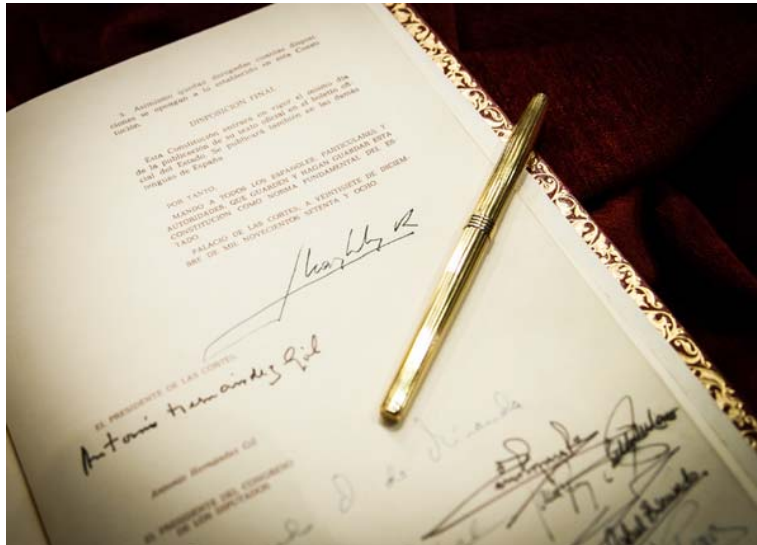 3. Asimismo quedan derogadas cuantas dispos
ciones se opongan a lo establecido en esta Consti
tución.
DISPOSICION FINAL
Esta Constitución entrará en vigor el mismo día
de la publicación de su texto oficial en el boletín ofi-
cial del Estado. Se publicará también en las demás
lenguas de España
POR TANTO,
MANDO A TODOS LOS ESPAÑOLES, PARTICULARES Y
AUTORIDADES, QUE GUARDEN Y HAGAN GUARDAR ESTA
CONSTITUCIÓN COMO NORMA FUNDAMENTAL DEL ES-
TADO.
PALACIO DE LAS CORTES, A VEINTISIETE DE DICIEM-
BRE DE MIL NOVECIENTOS SETENTA Y OCHO.
R
EL PRESIDENTE DE LAS CORTES,
Antonio Hernández Gil
Antonio Hernández Gil
EL PRESIDENTE DEL CONGRESO
DE LOS DIPUTADOS
de Miranda